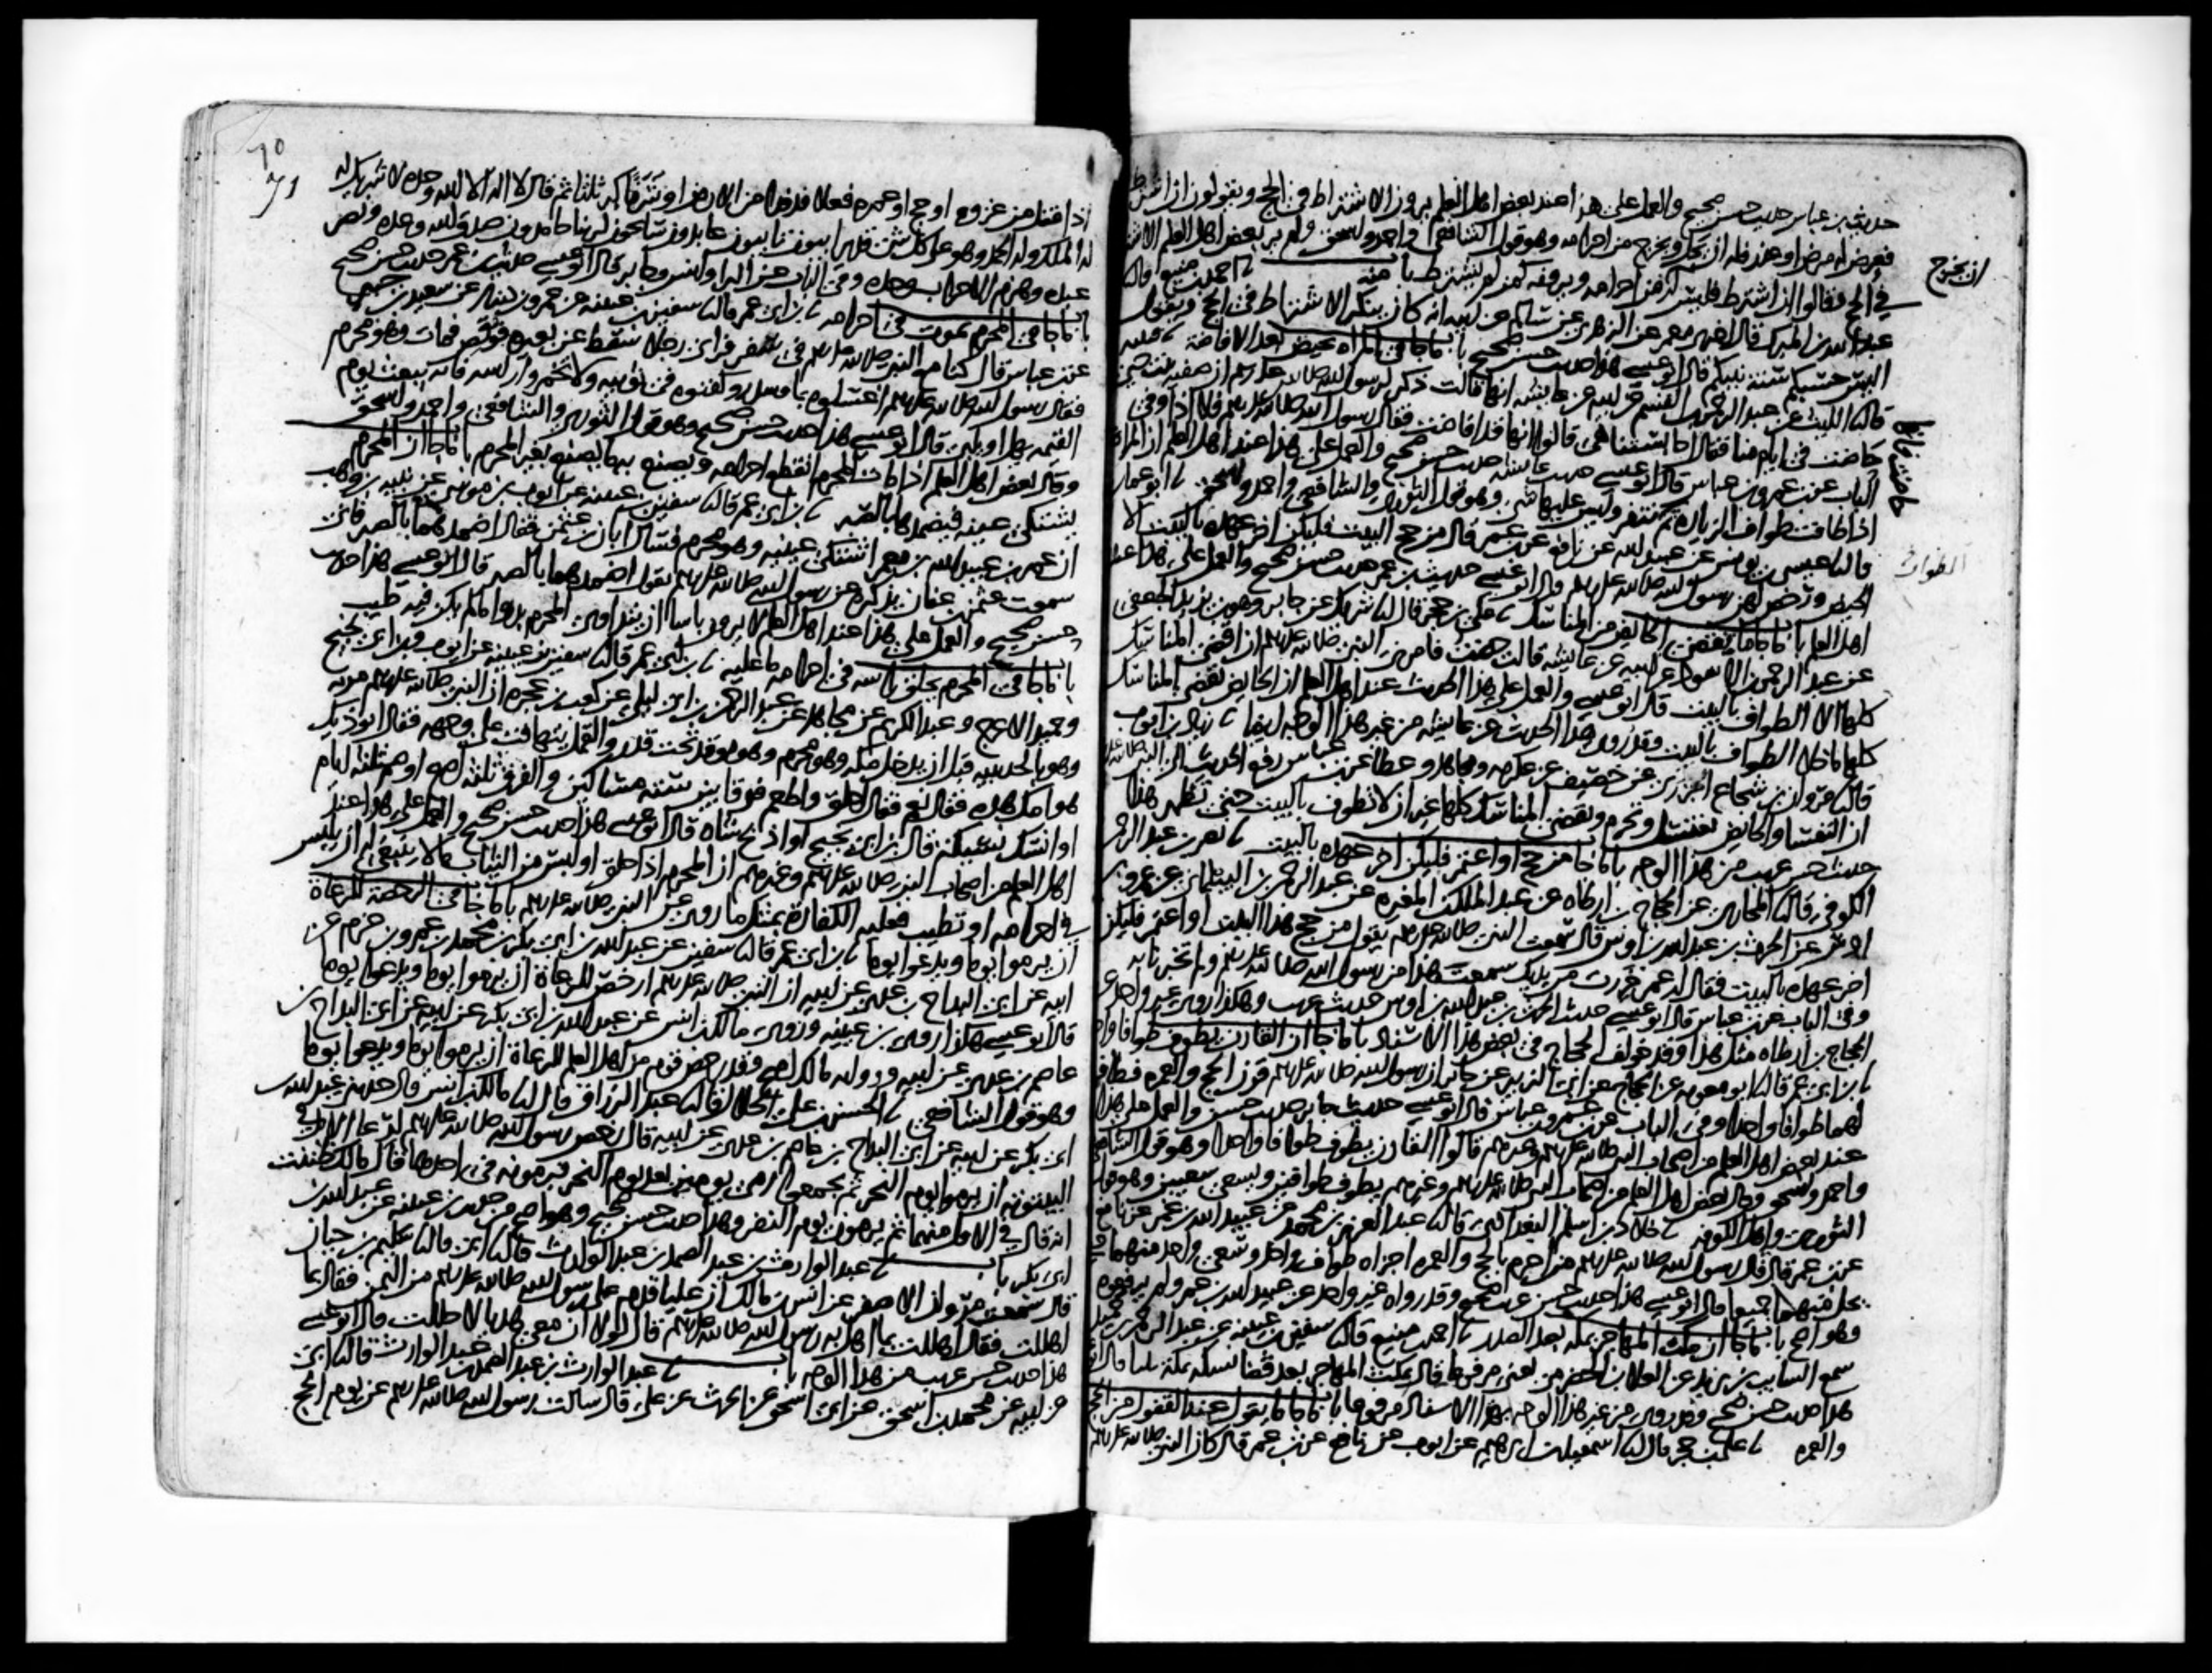 حديث بن عباس حديث حسن صحيح والعمل على هذا عند بعض اهل العلم يرون الاشتراط في الحج ويقولون ان اشترط
فعرض له مرض او عذر فله ان يحل ويخرج من احرامه وهو قول الشافعي واحمد واسحق ولم ير بعض اهل العلم الاشتراط
ان يخرج
في الحج وقالوا ان اشترط فليس له ان من احرامه ويرونه كمن لم يشترط باب منه احمد بن منيع قال
عبد الله بن المبرك قال اخبرني معمر عن الزهري عن سالم عن ابيه انه كان ينكر الاشتراط في الحج ويقول
اليس حسبكم سنة نبيكم قال ابو عيسى هذا حديث حسن صحيح باب ما جا في المراه تحيض بعد الافاضة قتيبه
قال الليث عن عبد الرحمن بن القسم عن ابيه عن عايشه انها قالت ذكر لرسول الله صلى الله عليه وسلم ان صفيه بنت حيي
حاضت في ايام منا فقال احابستنا هي قالوا انها قد افاضت فقال رسول الله صلى الله عليه وسلم فلا اذا وفي
الباب عن بن عمر وبن عباس قال ابو عيسى حديث عايشه حديث حسن صحيح والعمل على هذا عند اهل العلم ان المراة
اذا طافت طواف الزياره ثم تنفر وليس عليها شي وهو قول الثوري والشافعي واحمد واسحق ابو عمار
قال عيسى بن يونس عن عبيد الله عن نافع عن بن عمر قال من حج البيت فليكن اخر عهده بالبيت الا
الطواف
الحيض ورخص لهن رسول الله صلى الله عليه وسلم قال ابو عيسى حديث بن عمر حديث حسن صحيح والعمل على هذا عند
اهل العلم باب ما جا ما تقضي الحايض من المناسك علي بن حجر قال شريك عن جابر وهو بن يزيد الجعفي
عن عبد الرحمن بن الاسود عن ابيه عن عايشه قالت حضت فامرني النبي صلى الله عليه وسلم ان اقضي المناسك
كلها الا الطواف بالبيت قال ابو عيسى والعمل على هذا الحديث عند اهل العلم ان الحايض تقضي المناسك
كلها ما خلا الطواف بالبيت وقد روي هذا الحديث عن عايشه من غير هذا الوجه ايضا زياد بن ايوب
قال مروان بن شجاع الجزري عن خصيف عن عكرمه ومجاهد وعطا عن بن عباس رفع الحديث الى النبي صلى الله عليه
ان النفسا والحايض تغتسل وتحرم وتقضي المناسك كلها غير ان لا تطوف بالبيت حتى تطهر هذا
حديث حسن غريب من هذا الوجه باب ما جا من حج او اعتمر فليكن اخر عهده بالبيت نصر بن عبد الرحمن
الكوفي قال المحاربي عن الحجاج بن ارطاه عن عبد الملك بن المغيره عن عبد الرحمن بن البيلماني عن عمرو بن
اوس عن الحرث بن عبد الله بن اوس قال سمعت النبي صلى الله عليه وسلم يقول من حج هذا البيت او اعتمر فليكن
اخر عهده بالبيت فقال له عمر خررت من يديك سمعت هذا من رسول الله صلى الله عليه وسلم ولم تخبرنا به
وفي الباب عن بن عباس قال ابو عيسى حديث الحرث بن عبد الله بن اوس حديث غريب وهكذا روى غير واحد عن
الحجاج بن ارطاه مثل هذا وقد خولف الحجاج في بعض هذا الاسناد باب ما جا ان القارن يطوف طوافا واحدا
بن ابي عمر قال ابو معويه عن الحجاج عن ابي الزبير عن جابر ان رسول الله صلى الله عليه وسلم قرن الحج والعمره فطاف
لهما طوافا واحدا وفي الباب عن بن عمر وبن عباس قال ابو عيسى حديث جابر حديث حسن والعمل على هذا
عند بعض اهل العلم من اصحاب النبي صلى الله عليه وسلم وغيرهم قالوا القارن يطوف طوافا واحدا وهو قول الشافعي
واحمد واسحق وقال بعض اهل العلم من اصحاب النبي صلى الله عليه وسلم وغيرهم يطوف طوافين ويسعى سعيين وهو قول
الثوري واهل الكوفه خلاد بن اسلم البغدادي قال عبد العزيز بن محمد عن عبيد الله بن عمر عن نافع
عن بن عمر قال قال رسول الله صلى الله عليه وسلم من احرم بالحج والعمره اجزاه طواف واحد وسعي واحد منهما حتى
يحل منهما جميعا قال ابو عيسى هذا حديث حسن غريب صحيح وقد رواه غير واحد عن عبيد الله بن عمر ولم يرفعوه
وهو اصح باب ما جا ان مكث المهاجر بمكه بعد الصدر احمد بن منيع قال سفين بن عيينه عن عبد الرحمن بن حميد
سمع السايب بن يزيد عن العلا بن الحضرمي يعني مرفوعا قال يمكث المهاجر بعد قضا نسكه بمكة ثلاثا قال ابو
هذا حديث حسن صحيح وقد روي من غير هذا الوجه بهذا الاسناد مرفوعا باب ما جا ما يقول عند القفول من الحج
والعمره علي بن حجر قال اسمعيل بن ابرهيم عن ايوب عن نافع عن بن عمر قال كان النبي صلى الله عليه وسلم
اذا قفل من غزوه او حج او عمره فعلا فدفدا من الارض او شرفا كبر ثلثا ثم قال لا اله الا الله وحده لا شريك له
له الملك وله الحمد وهو على كل شي قدير ايبون تايبون عابدون سايحون لربنا حامدون صدق الله وعده ونصر
عبده وهزم الاحزاب وحده وفي الباب عن البرا وانس وجابر قال ابو عيسى حديث بن عمر حديث حسن صحيح
باب ما جا في المحرم يموت في احرامه بن ابي عمر قال سفين بن عيينه عن عمرو بن دينار عن سعيد بن جبير
عن بن عباس قال كنا مع النبي صلى الله عليه وسلم في سفر فراى رجلا سقط عن بعيره فوقص فمات وهو محرم
فقال رسول الله صلى الله عليه وسلم اغسلوه بما وسدر وكفنوه في ثوبيه ولا تخمروا راسه فانه يبعث يوم
القيمه يهل او يلبي قال ابو عيسى هذا حديث حسن صحيح وهو قول الثوري والشافعي واحمد واسحق
وقال بعض اهل العلم اذا مات المحرم انقطع احرامه ويصنع به كما يصنع بغير المحرم باب ما جا ان المحرم
يشتكي عينه فيضمدها بالصبر بن ابي عمر قال سفين بن عيينه عن ايوب بن موسى عن نبيه بن وهب
ان عمر بن عبيد الله بن معمر اشتكى عينيه وهو محرم فسال ابان بن عثمن فقال اضمدهما بالصبر فاني
سمعت عثمن بن عفان يذكره عن رسول الله صلى الله عليه وسلم يقول اضمدهما بالصبر قال ابو عيسى هذا حديث
حسن صحيح والعمل على هذا عند اهل العلم لا يرون باسا ان يتداوى المحرم بدوا ما لم يكن فيه طيب
باب ما جا في المحرم يحلق راسه في احرامه ما عليه بن ابي عمر قال سفين بن عيينه عن ايوب وبن ابي نجيح
وحميد الاعرج وعبد الكريم عن مجاهد عن عبد الرحمن بن ابي ليلى عن كعب بن عجره ان النبي صلى الله عليه وسلم مر به
وهو بالحديبيه قبل ان يدخل مكه وهو محرم وهو يوقد تحت قدر والقمل يتهافت على وجهه فقال اتوذيك
هوامك هذه فقال نعم فقال احلق واطعم فرقا بين سته مساكين والفرق ثلثه اصع او صم ثلثه ايام
او انسك نسيكة قال بن ابي نجيح او اذبح شاة قال ابو عيسى هذا حديث حسن صحيح والعمل على هذا عند
اهل العلم من اصحاب النبي صلى الله عليه وسلم وغيرهم ان المحرم اذا حلق او لبس من الثياب ما لا ينبغي له ان يلبس
في احرامه او تطيب فعليه الكفارة بمثل ما روي عن النبي صلى الله عليه وسلم باب ما جا في الرخصة للرعاة
ان يرموا يوما ويدعوا يوما بن ابي عمر قال سفين عن عبد الله بن ابي بكر بن محمد بن عمرو بن حزم عن
ابيه عن ابي البداح بن عدي عن ابيه ان النبي صلى الله عليه وسلم ارخص للرعاة ان يرموا يوما ويدعوا يوما
قال ابو عيسى هكذا روى بن عيينه وروى مالك بن انس عن عبد الله بن ابي بكر عن ابيه عن ابي البداح بن
عاصم بن عدي عن ابيه ورواية مالك اصح وقد رخص قوم من اهل العلم للرعاة ان يرموا يوما ويدعوا يوما
وهو قول الشافعي الحسن بن علي الخلال قال عبد الرزاق قال مالك بن انس قال حدثني عبد الله بن
ابي بكر عن ابيه عن ابي البداح بن عاصم بن عدي عن ابيه قال رخص رسول الله صلى الله عليه وسلم لرعا الابل في
البيتوته ان يرموا يوم النحر ثم يجمعوا رمي يومين بعد يوم النحر فيرمونه في احدهما قال مالك ظننت
انه قال في الاول منهما ثم يرمون يوم النفر وهذا حديث حسن صحيح وهو اصح من حديث بن عيينه عن عبد الله بن
ابي بكر باب عبد الوارث بن عبد الصمد بن عبد الوارث قال ابي قال سليم بن حيان
قال سمعت مروان الاصفر عن انس بن مالك ان عليا قدم على رسول الله صلى الله عليه وسلم من اليمن فقال بما
اهللت فقال اهللت بما اهل به رسول الله صلى الله عليه وسلم قال لولا ان معي هديا لاحللت قال ابو عيسى
هذا حديث حسن غريب من هذا الوجه باب عبد الوارث بن عبد الصمد بن عبد الوارث قال ابي
عن ابيه عن محمد بن اسحق عن ابي اسحق عن الحرث عن علي قال سالت رسول الله صلى الله عليه وسلم عن يوم الحج